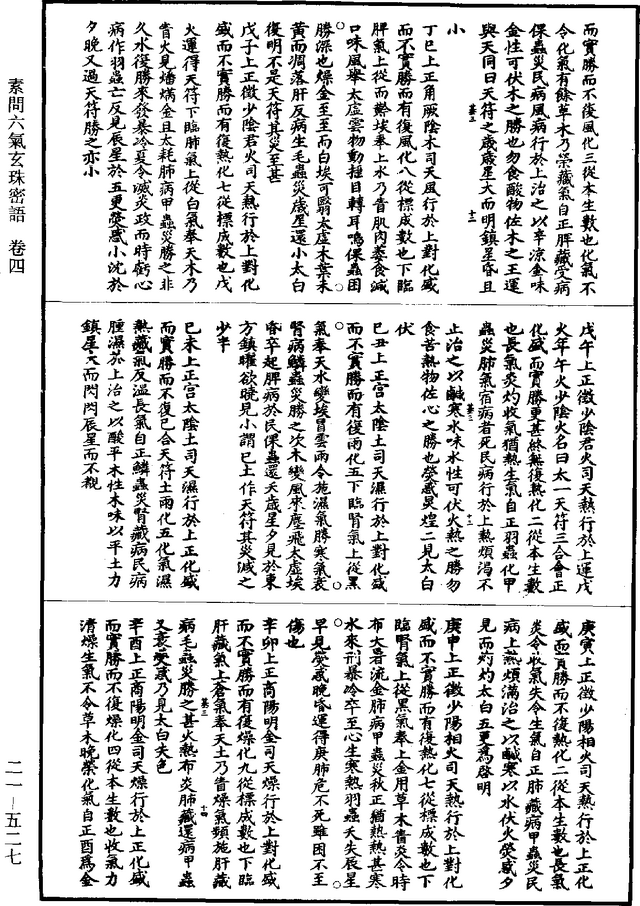 而實勝而不復風化三從本生數也化氣不
令化氣有餘草木乃榮藏氣自正脾藏受病
倮蟲災民病風病行於上治之以辛涼金味
金性可伏木之勝也勿食酸物佐木之王運
與天同曰天符之歲歲星大而明鎮星昏且
小
丁巳上正角厥陰木司天風行於上對化盛
而不實勝而有復風化八從標成數也下臨
脾氣上從而難埃奉上水乃眚肌肉萎食減
口味風舉太虛雲物動搖目轉耳鳴倮蟲困
勝深也燥金至至而白埃可翳太虛木葉未
黃而凋落肝反病生毛蟲災歲星還小太白
復明不是天符其災至甚
戊子上正徵少陰君火司天熱行於上對化
盛而不實勝而有復熱化七從標成數也戊
火運得天符下臨肺氣上從白氣奉天木乃
眚火見燔焫金且太耗肺病甲蟲災勝之非
久水復勝來發暴冷夏令減炎政而時虧心
病作羽蟲亡反見辰星於五更熒惑小沈於
夕晚又過天符勝之亦小
戊午上正徵少陰君火司天熱行於上運戊
火年午火少陰火名曰太一天符三合會正
化盛而實勝更甚終無復熱化二從本生數
也長氣炎灼收氣猶熱生氣自正羽蟲化甲
蟲災肺氣宿病者死民病行於上熱煩渴不
止治之以鹹寒水味水性可伏火熱之勝勿
食苦熱物佐心之勝也熒惑炅煌二見太白
伏
己丑上正宮太陰土司天濕行於上對化盛
而不實勝而有復雨化五下臨腎氣上從黑
氣奉天水變埃冒雲雨令施濕氣勝寒氣衰
腎病鱗蟲災勝之次木變風來塵飛太虛埃
昏卒起脾病於民倮蟲還夭歲星夕見於東
方鎮曜欲晚見小謂己土作天符其災減之
少半
己未上正宮太陰土司天濕行於上正化盛
而實勝而不復己合天符土雨化五化氣濕
熱藏氣反溫長氣自正鱗蟲災腎藏病民病
腫濕於上治之以酸平木性木味以平土力
鎮星大而閃閃辰星而不覩
庚寅上正徵少陽相火司天熱行於上正化
盛而實勝而不復熱化二從本生數也長氣
炎令收氣失令生氣自正肺藏病甲蟲災民
病上熱煩滿治之以鹹寒以水伏火熒惑夕
見而灼灼太白五更為啓明
庚申上正徵少陽相火司天熱行於上對化
盛而不實勝而有復熱化七從標成數也下
臨腎氣上從黑氣奉上金用草木眚炎令時
布大暑流金肺病甲蟲災秋正猶熱熱甚寒
水來刑暴冷卒至心生寒熱羽蟲夭失辰星
早見熒惑晚昏運得庚肺危不死雖困不至
傷也
辛卯上正商陽明金司天燥行於上對化盛
而不實勝而有復燥化九從標成數也下臨
肝藏氣上蒼氣奉天土乃眚燥氣頻施肝藏
病毛蟲災勝之甚火熱布炎肺藏還病甲蟲
又衰熒惑乃見太白失色
辛酉上正商陽明金司天燥行於上正化盛
而實勝而不復燥化四從本生數也收氣力
清燥生氣不令草木晚榮化氣自正酉為金
素問六氣玄珠密語 卷四
二一—五二七